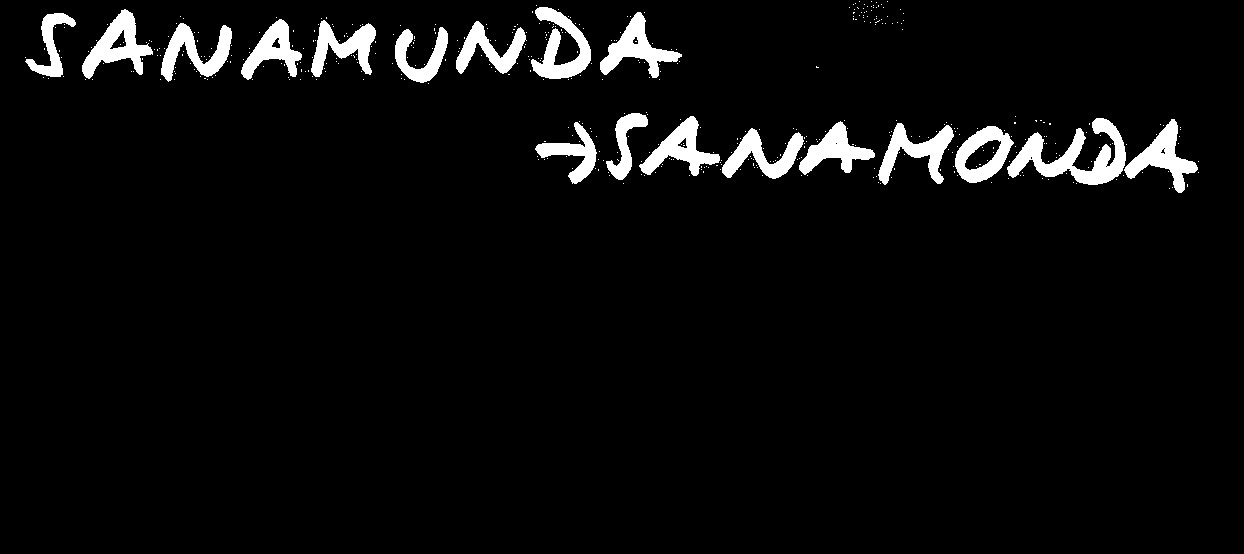 SANAMUNDA
→SANAMONDA